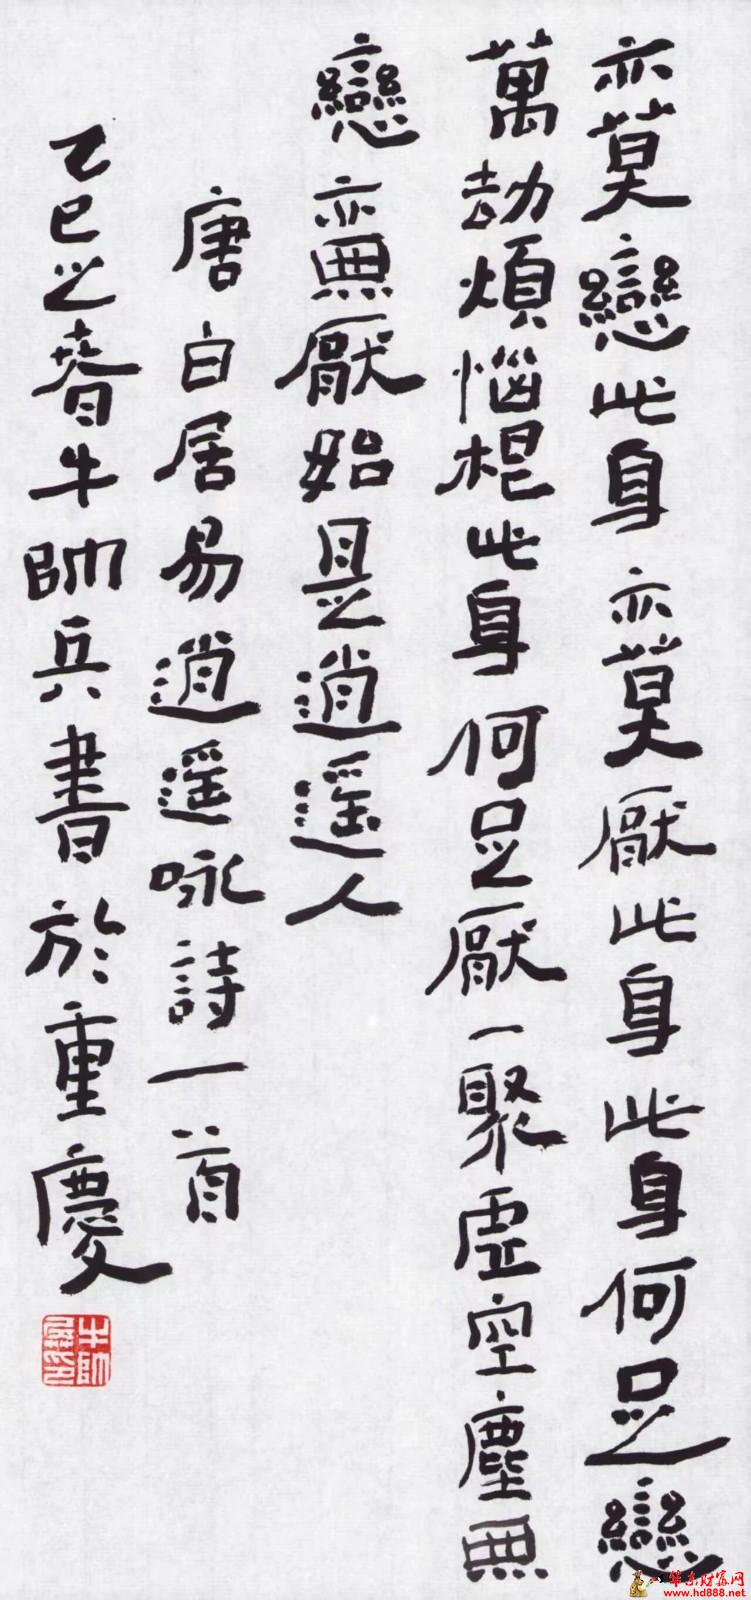 亦莫戀此身亦莫厭此身此身何足戀
萬劫煩惱根此身何足厭一聚虛空塵無
戀亦無厭始是逍遥人
唐白居易逍遥咏詩一首
乙巳之春牛帥兵書於重慶
牛帥
華東財富网
www.hd888.net